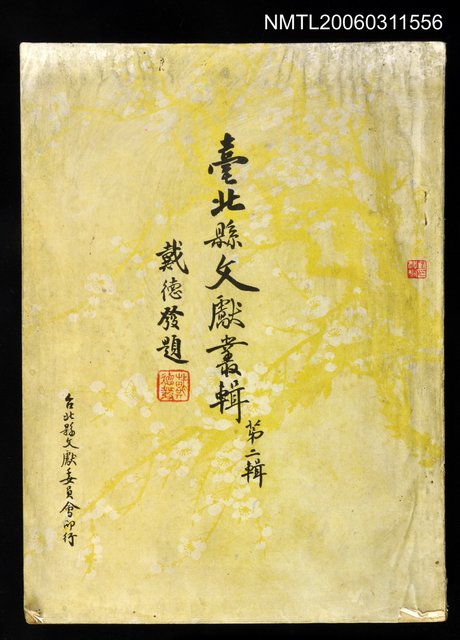 NMTL20060311556
臺北縣文獻叢輯
第二輯
戴德發題
台北縣文獻委員會印行